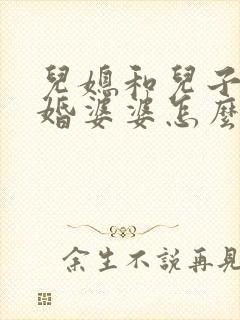 兒媳和兒子
婚婆婆怎麼
余生不說再見